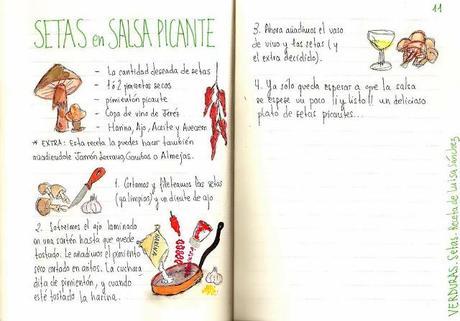 SETAS en SALSA PICANTE
- La cantidad deseada de setas
- 1 o 2 pimientos secos
- pimientón picante
- Copa de vino de Jerés
- Harina, Ajo, Aceite y
* EXTRA: Esta receta la puedes hacer también
añadiendole Jamón Serrano, Gambas o Almejas.
1. Cortamos y fileteamos las setas
(ya limpias) y un diente de ajo
2. Sofreimos el ajo laminado
en una sartén hasta que quede
tostado. Le añadimos el pimiento
seco cortado en aritos. La cuchara
dita de pimientón, y cuando
esté tostado la harina.
HARINA
11
3. Ahora añadimos el vaso
de vino y las setas (y
el extra decidido).
4. Ya sólo queda esperar a que la salsa
se espese un poco ¡¡y listo!! un delicioso
plato de setas picantes...
VERDURAS. Setas. Receta de Luisa Sánchez